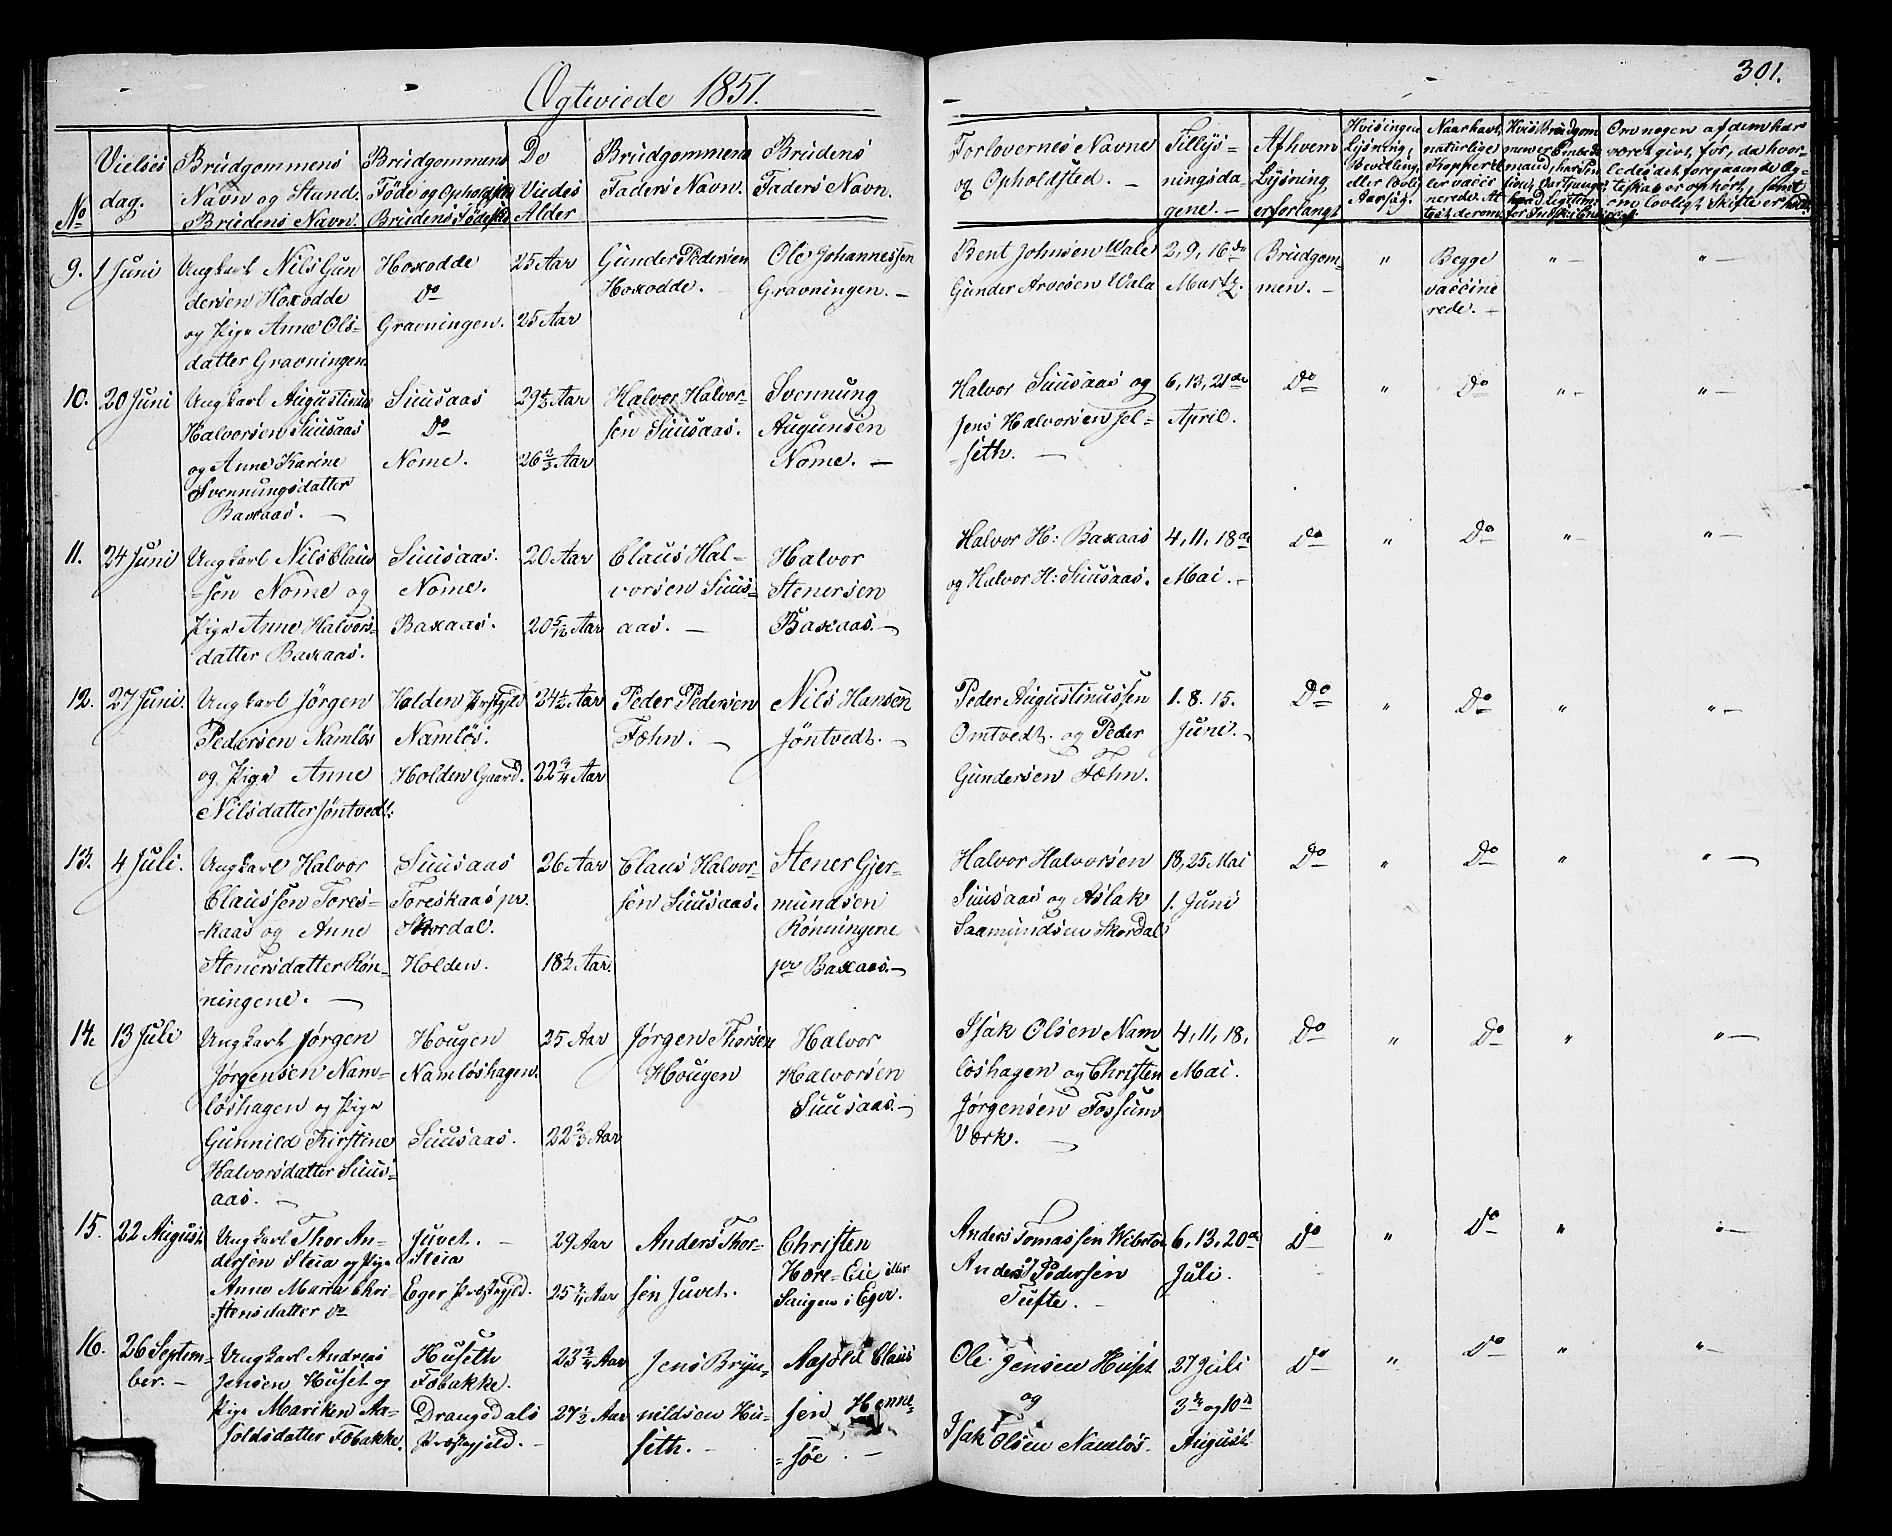 Ogteviede 1851.
301.
No
Vielses
dag.
Brudgommens
Navn og Stand.
Brudens Navn.
Brudgommens
Føde og Opholdssted
Brudens Fødested
De
Viedes
Alder
Brudgommens
Faders Navn.
Brudens
Faders Navn.
Forlovernes Navne
og Opholdsted. -
Tillys-
ningsda-
gene. -
Af hvem
Lysning
er forlangt
Hvis ingen
Lysning,
Bevilling
eller lovlig
Aarsag.
Naar havt
naturlige
Kopper el-
ler vacci
nerede. At
test derom.
Om nogen af dem har
været givt før, da hvor-
ledes det foregaaende Æg-
teskab er ophørt, samt
om lovligt Skifte er holdt
9. 1 Juni
Ungkarl Nils Gun
dersen Hoxodde
og Pige Anne Ols-
datter Gravningen
Hoxodde
Do
Gravningen.
25 Aar
25 Aar
Gunder Pedersen
Hoxodde. -
Ole Johannessen
Gravningen. -
Bent Johnsen Wale
Gunder Arvesen Wala
2, 9, 16de
Martz.
Brudgom-
men. -
"
Begge
vaccine
rede. -
" -
" -
10. 20 Juni
Ungkarl Augustinus
Halvorsen Suusaas
og Anne Karine
Svennungsdatter
Baxaas. -
Suusaas
Do
Nome.
29 1/2 Aar
26 2/3 Aar
Halvor Halvor-
sen Suusaas.
Svennung
Augunsen
Nome. -
Halvor Suusaas og
Jens Halvorsen Jel-
-seth. -
6, 13, 21de
April.
Do
"
Do
" -
" -
11. 24 Juni
Ungkarl Nils Claus
-sen Nome og
Pige Anne Halvors-
datter Baxaas.
Suusaas.
Nome.
Baxaas.
20 Aar
20 5/12 Aar
Claus Hal-
vorsen Suus-
aas. -
Halvor
Stenersen
Baxaas. -
Halvor H: Baxaas
og Halvor H: Suusaas.
4, 11, 18de
Mai. -
Do
"
Do
" -
" -
12. 27 Juni.
Ungkarl Jörgen
Pedersen Namlös
og Pige Anne
Nilsdatter Jöntvedt.
Holden Prstgjld
Namlös.
Holden Gaard.
24 1/2 Aar
22 3/4 Aar
Peder Pedersen
Fæhn. -
Nils Hansen
Jöntvedt. -
Peder Augustinussen
Omtvedt. og Peder
Gundersen Fæhn.
1. 8. 15.
Juni. -
Do
"
Do
"
" -
13. 4 Juli.
Ungkarl Halvor
Claussen Tores-
-kaas og Anne
Stenersdatter Røn-
ningene. -
Suusaas
Toreskaas pr.
Skordal.
Holden.
26 Aar
18 1/2 Aar.
Claus Halvor-
sen Suusaas.
Stener Gjer-
mundsen
Rønningene
pr Baxaas. -
Halvor Halvorsen
Suusaas og Aslak
Saamundsen Skordal
18, 25 Mai
1. Juni
Do
"
Do
"
" -
14. 13 Juli
Ungkarl Jörgen
Jörgensen Nam-
löshagen og Pige
Gunnild Kirstine
Halvorsdatter Suus-
aas. -
Hougen
Namlöshagen.
Suusaas.
25 Aar
22 2/3 Aar
Jørgen Thorsen
Hougen
Halvor
Halvorsen
Suusaas. -
Isak Olsen Nam
löshagen og Christen
Jörgensen Fossum
Værk. -
4, 11, 18,
Mai.
Do
"
Do
"
" -
15. 22 August.
Ungkarl Thor An-
dersen Steia og Pige
Anne Maria Chri-
stensdatter do
Juvet. -
Steia
Eger Præstgjld.
29 Aar
25 3/4 Aar
Anders Thor-
sen Juvet.
Christen
Hore-Eie eller
Saugen i Eger.
Anders Tomassen Wibeto
Anders Pedersen
Tufte. -
6, 13, 20de
Juli.
Do
"
Do
"
" -
16. 26 Septem-
ber. -
Ungkarl Andreas
Jensen Huset og
Pige Mariken Aa-
soldsdatter Fobakke.
Huseth
Fobakke.
Drangedals
Præstegjeld. -
23 3/4 Aar
27 1/2 Aar
Jens Bryn-
nildsen Hu-
seth. -
Aasold Claus
sen Henne-
-söe. -
Ole Jensen Huset
og
Isak Olsen Namlös.
27 Juli
3de og 10de
August
Do
"
Do
"
" -